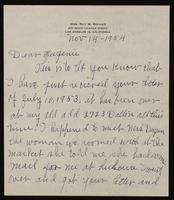 MRS. ROY M. BROWN
LOS ANGELES 15, CALIFORNIA
Nov-14-1954
Dear Eugenie
This is to let you know that
I have just received your letter
of July 10, 1953, it has been over
at my old add 2723 Dalton all this
time. I happened to meet Mrs
the woman we roomed with at the
market she told me she had some
mail for me at her house I went
over and got your letter and